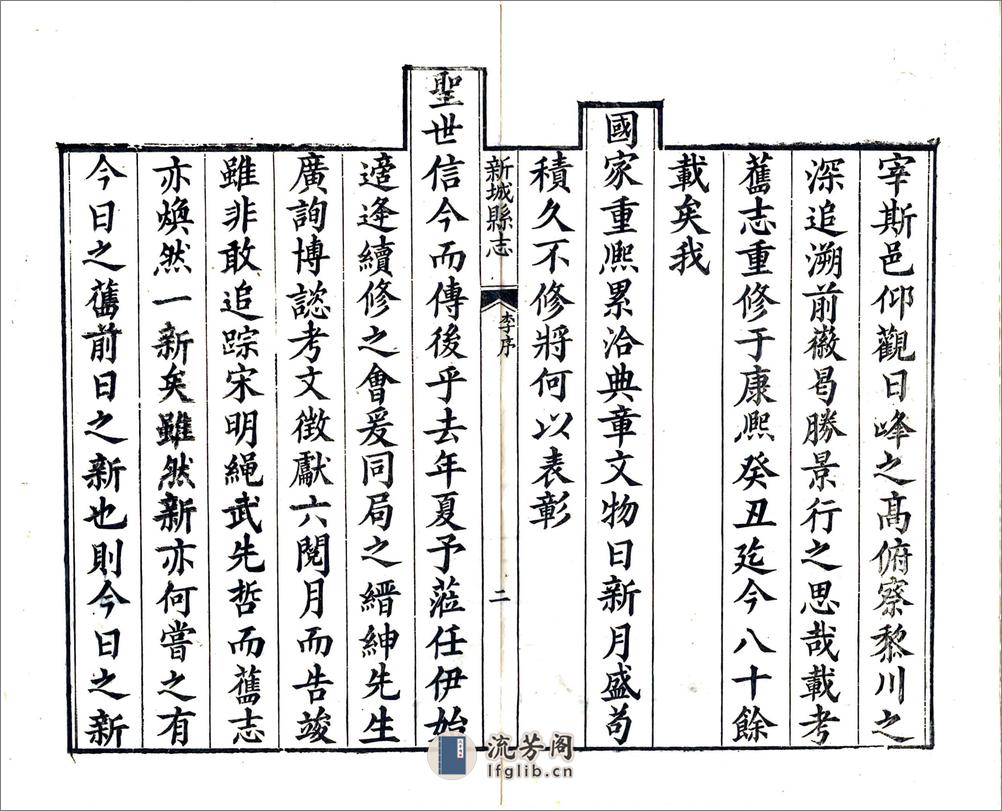 宰斯邑仰觀日峰之髙俯察黎川之
深追溯前徽曷勝景行之思哉載考
舊志重修于康熙癸丑迄今八十餘
載矣我
國家重熙累洽典章文物日新月盛苟
積久不修將何以表彰
新城縣志
李序
二
聖世信今而傳後乎去年夏予蒞任伊始
適逢續修之會爰同局之縉紳先生
廣詢博諮考文徵獻六閱月而告竣
雖非敢追踪宋明繩武先哲而舊志
亦煥然一新矣雖然新亦何嘗之有
今日之舊前日之新也則今日之新
流芳阁
lfglib.cn